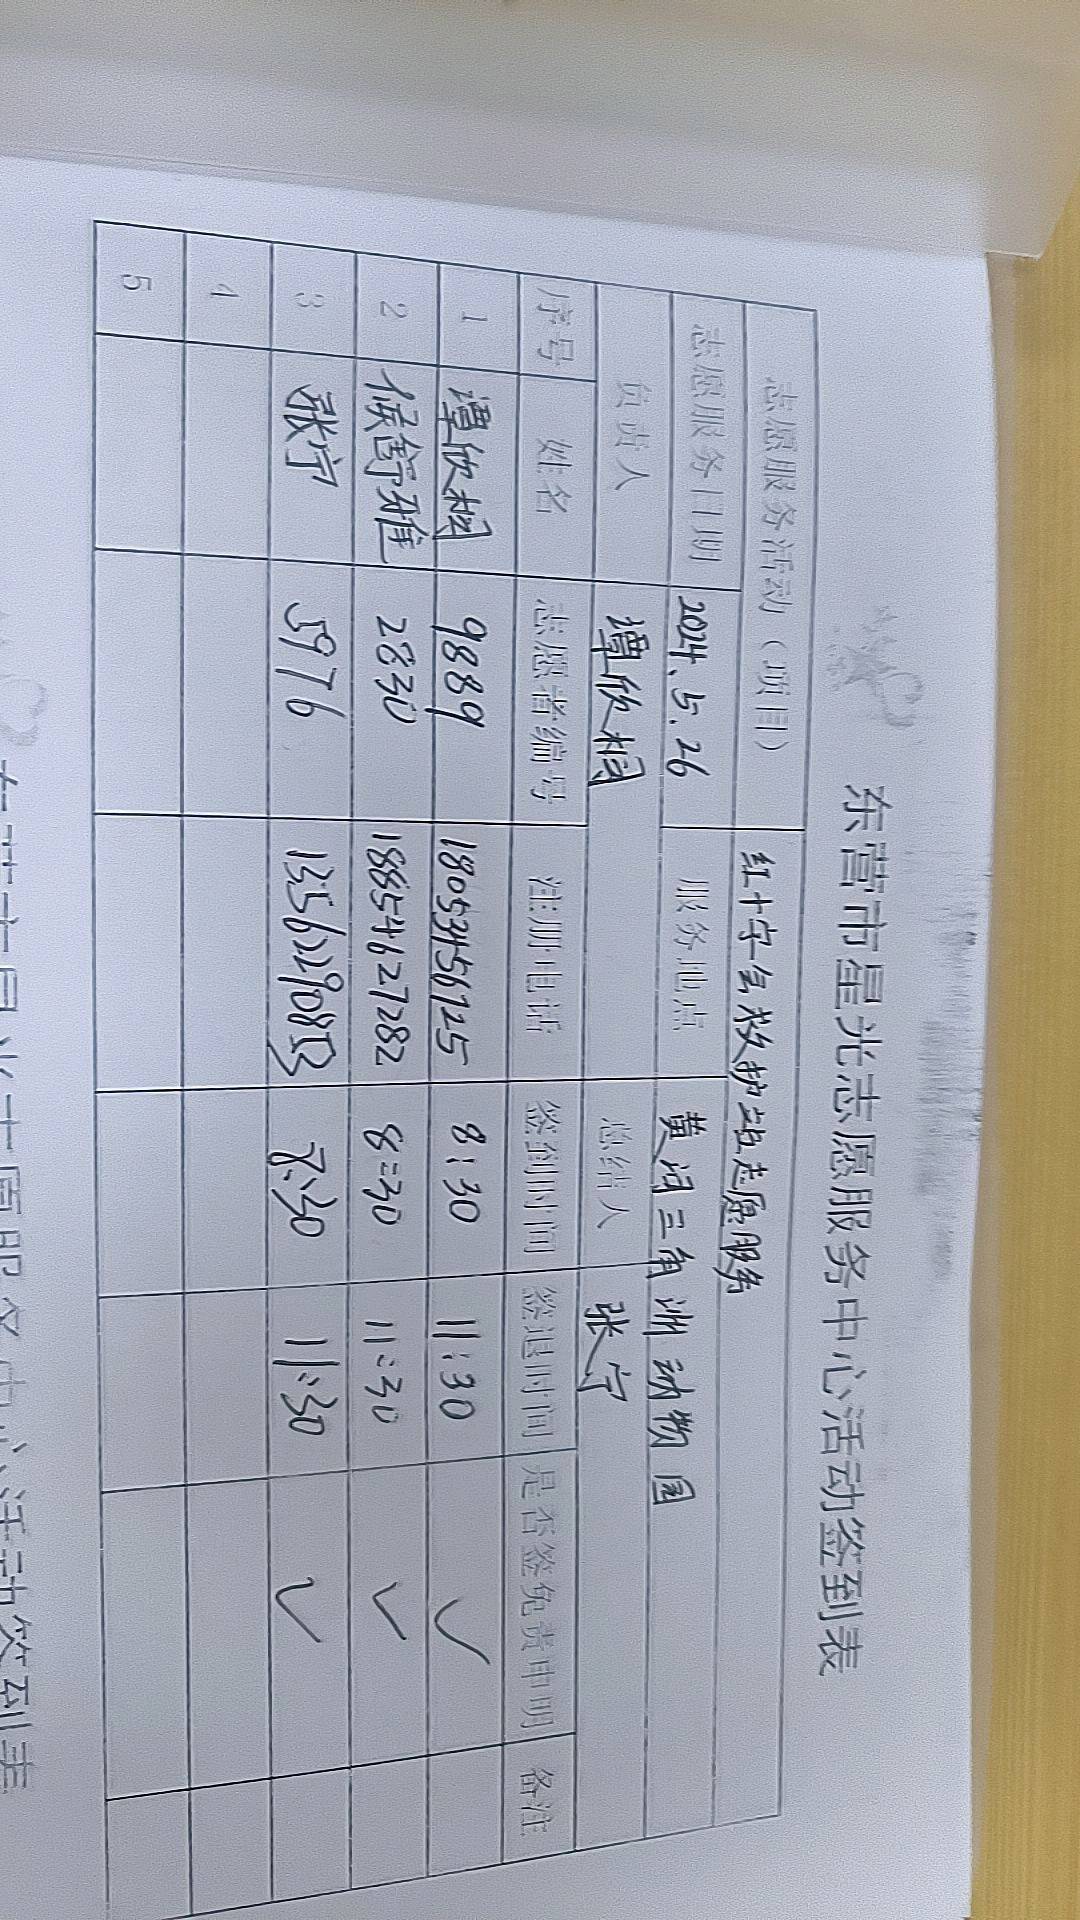 东营市星光志愿服务中心活动签到表
志愿服务活动（项目） 红十字会救护站志愿服务
志愿服务日期 2024.5.26 服务地点 黄河三角洲动物园
负责人 谭欣桐 总结人 张宁
序号 姓名 志愿者编号 注册电话 签到时间 签退时间 是否签免责申明 备注
1 谭欣桐 9889 18053456725 8:30 11:30 ✓
2 侯舒雅 2830 18854627282 8:30 11:30 ✓
3 张宁 5976 8:30 11:30 ✓
4
5